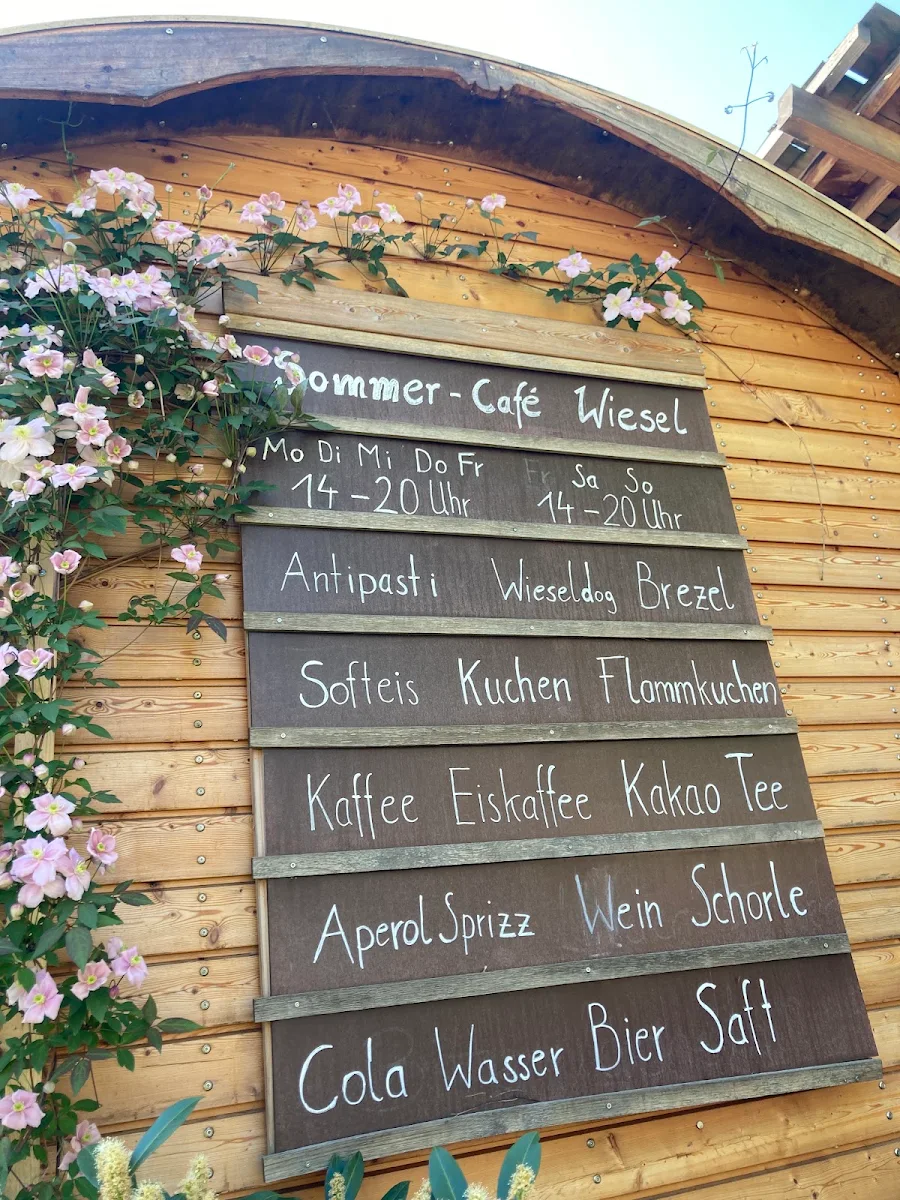 Sommer - Café Wiesel
Mo Di Mi Do Fr Fr Sa So
14 - 20 Uhr 14 - 20 Uhr
Antipasti Wieseldog Brezel
Softeis Kuchen Flammkuchen
Kaffee Eiskaffee Kakao Tee
Aperol Sprizz Wein Schorle
Cola Wasser Bier Saft